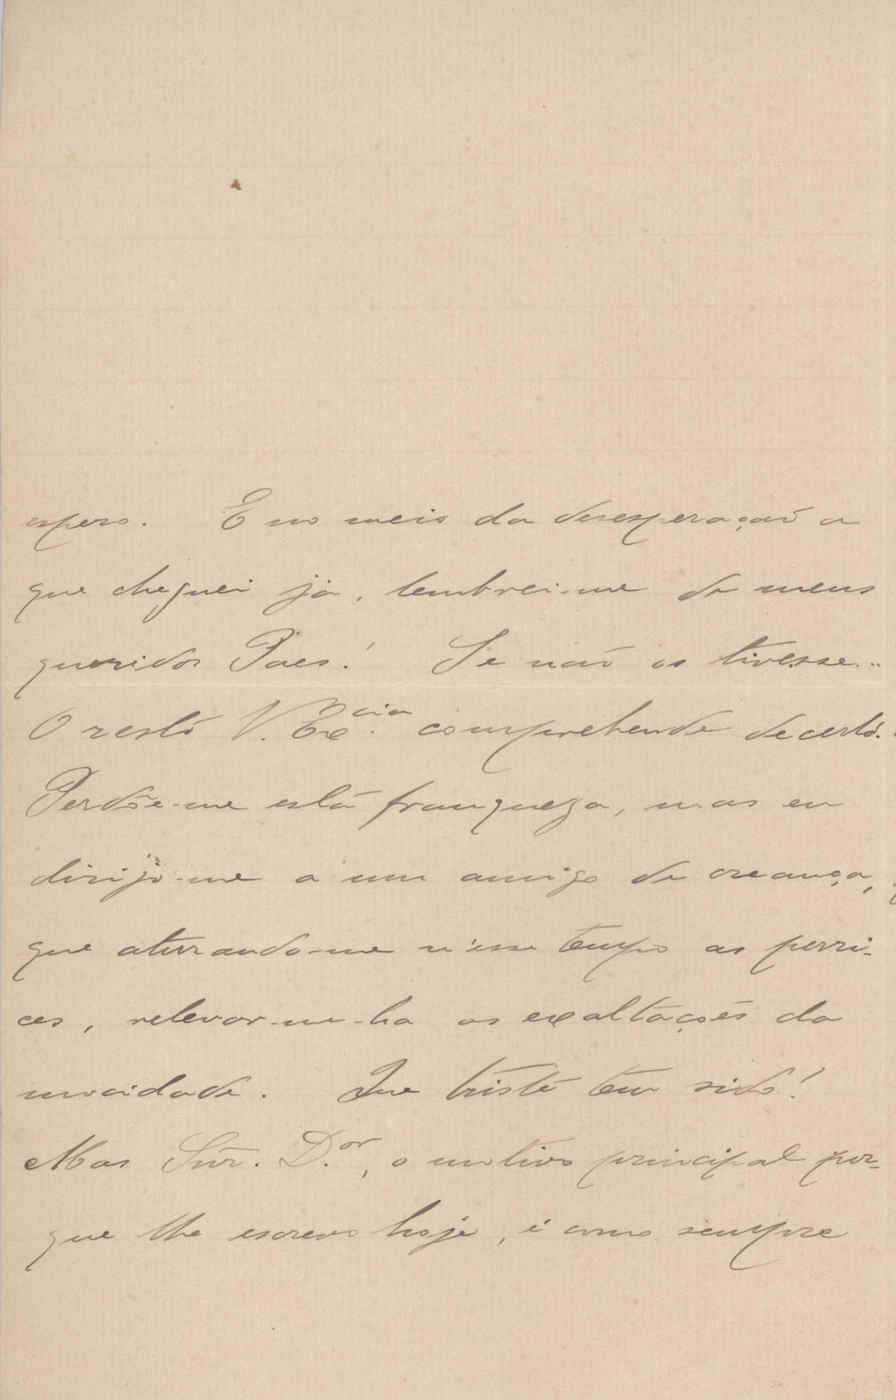 espero. E no meio da desesperação a
que cheguei já, lembrei-me de meus
queridos Paes! Se não os tivesse..
O resto V. Ex.cia comprehende decerto.
Perdôe-me esta franqueza, mas eu
dirijo-me a um amigo de creança,
que aturando-me n'esse tempo as perri-
ces, relevar-me-ha as exaltações da
mocidade. Que triste tem sido!
Mas Snr. D.or, o motivo principal por-
que lhe escrevo hoje, é como sempre